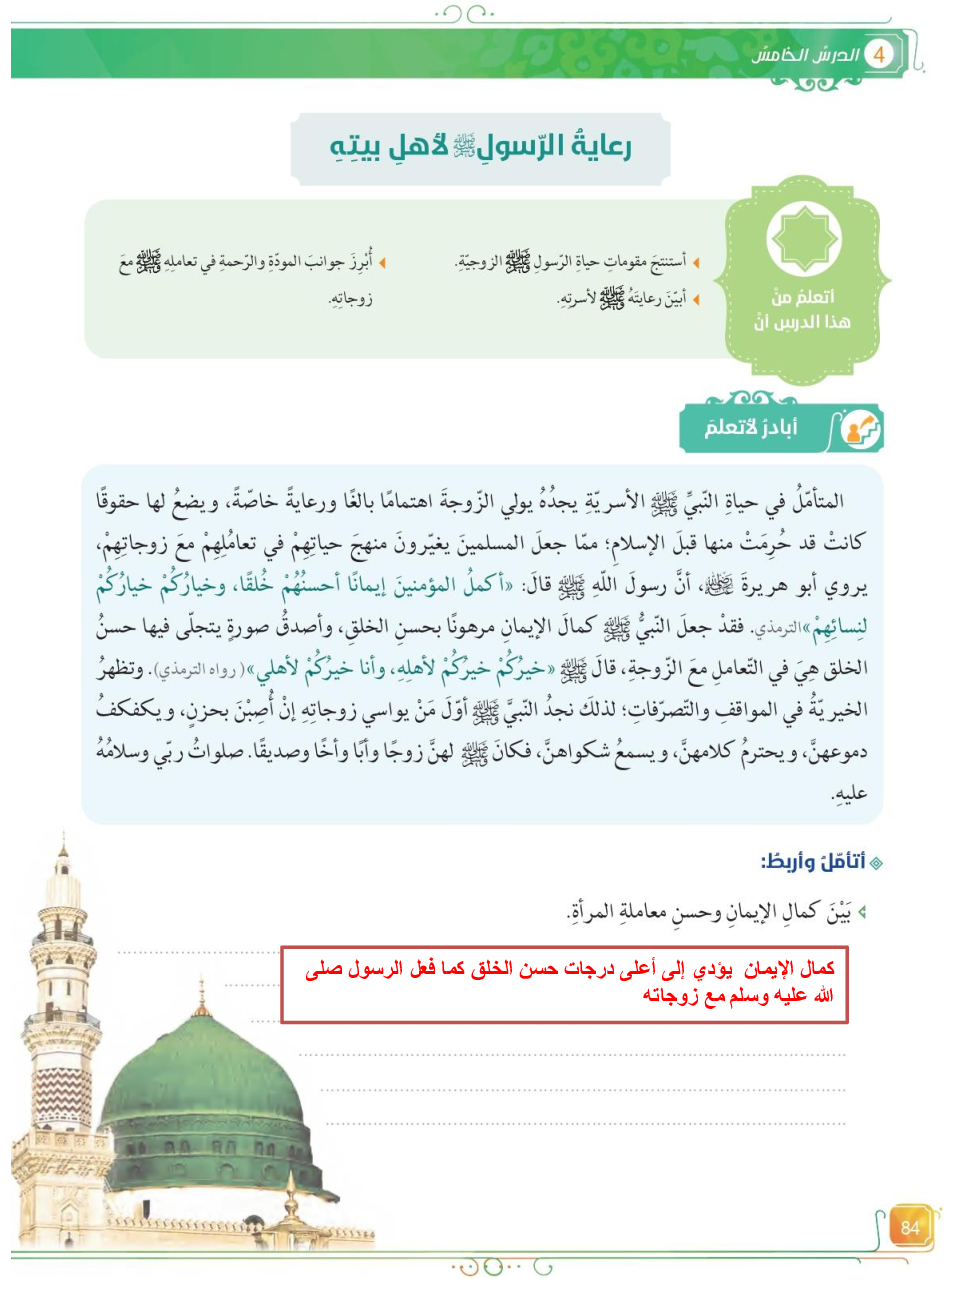 4 الدرسُ الخامسُ
رعايةُ الرّسولِ ﷺ لأهلِ بيتِهِ
أتعلمُ مِنْ
هذا الدرسِ أنْ
أستنتجَ مقوماتِ حياةِ الرّسولِ ﷺ الزوجيّةِ.
أبيّنَ رعايتَهُ ﷺ لأسرتِهِ.
أُبْرِزَ جوانبَ المودّةِ والرّحمةِ في تعاملِهِ ﷺ معَ
زوجاتِهِ.
أبادرُ لأتعلمَ
المتأمّلُ في حياةِ النّبيِّ ﷺ الأسريّةِ يجدُهُ يولي الزّوجةَ اهتمامًا بالغًا ورعايةً خاصّةً، ويضعُ لها حقوقًا
كانتْ قد حُرِمَتْ منها قبلَ الإسلامِ؛ ممّا جعلَ المسلمينَ يغيّرونَ منهجَ حياتِهِمْ في تعامُلِهِمْ معَ زوجاتِهِمْ،
يروي أبو هريرةَ رضي الله عنه، أنَّ رسولَ اللّهِ ﷺ قالَ: «أكملُ المؤمنينَ إيمانًا أحسنُهُمْ خُلقًا، وخيارُكُمْ خيارُكُمْ
لنِسائِهِمْ»الترمذي. فقدْ جعلَ النّبيُّ ﷺ كمالَ الإيمانِ مرهونًا بحسنِ الخلقِ، وأصدقُ صورةٍ يتجلّى فيها حسنُ
الخلق هِيَ في التّعاملِ معَ الزّوجةِ، قالَ ﷺ «خيرُكُمْ خيرُكُمْ لأهلِهِ، وأنا خيرُكُمْ لأهلي»(رواه الترمذي). وتظهرُ
الخيريّةُ في المواقفِ والتّصرّفاتِ؛ لذلكَ نجدُ النّبيَّ ﷺ أوّلَ مَنْ يواسي زوجاتِهِ إنْ أُصِبْنَ بحزنٍ، ويكفكفُ
دموعهنَّ، ويحترمُ كلامهنَّ، ويسمعُ شكواهنَّ، فكانَ ﷺ لهنَّ زوجًا وأبًا وأخًا وصديقًا. صلواتُ ربّي وسلامُهُ
عليهِ.
أتأمّلُ وأربطُ:
بَيْنَ كمالِ الإيمانِ وحسنِ معاملةِ المرأةِ.
كمال الإيمان يؤدي إلى أعلى درجات حسن الخلق كما فعل الرسول صلى
الله عليه وسلم مع زوجاته
84